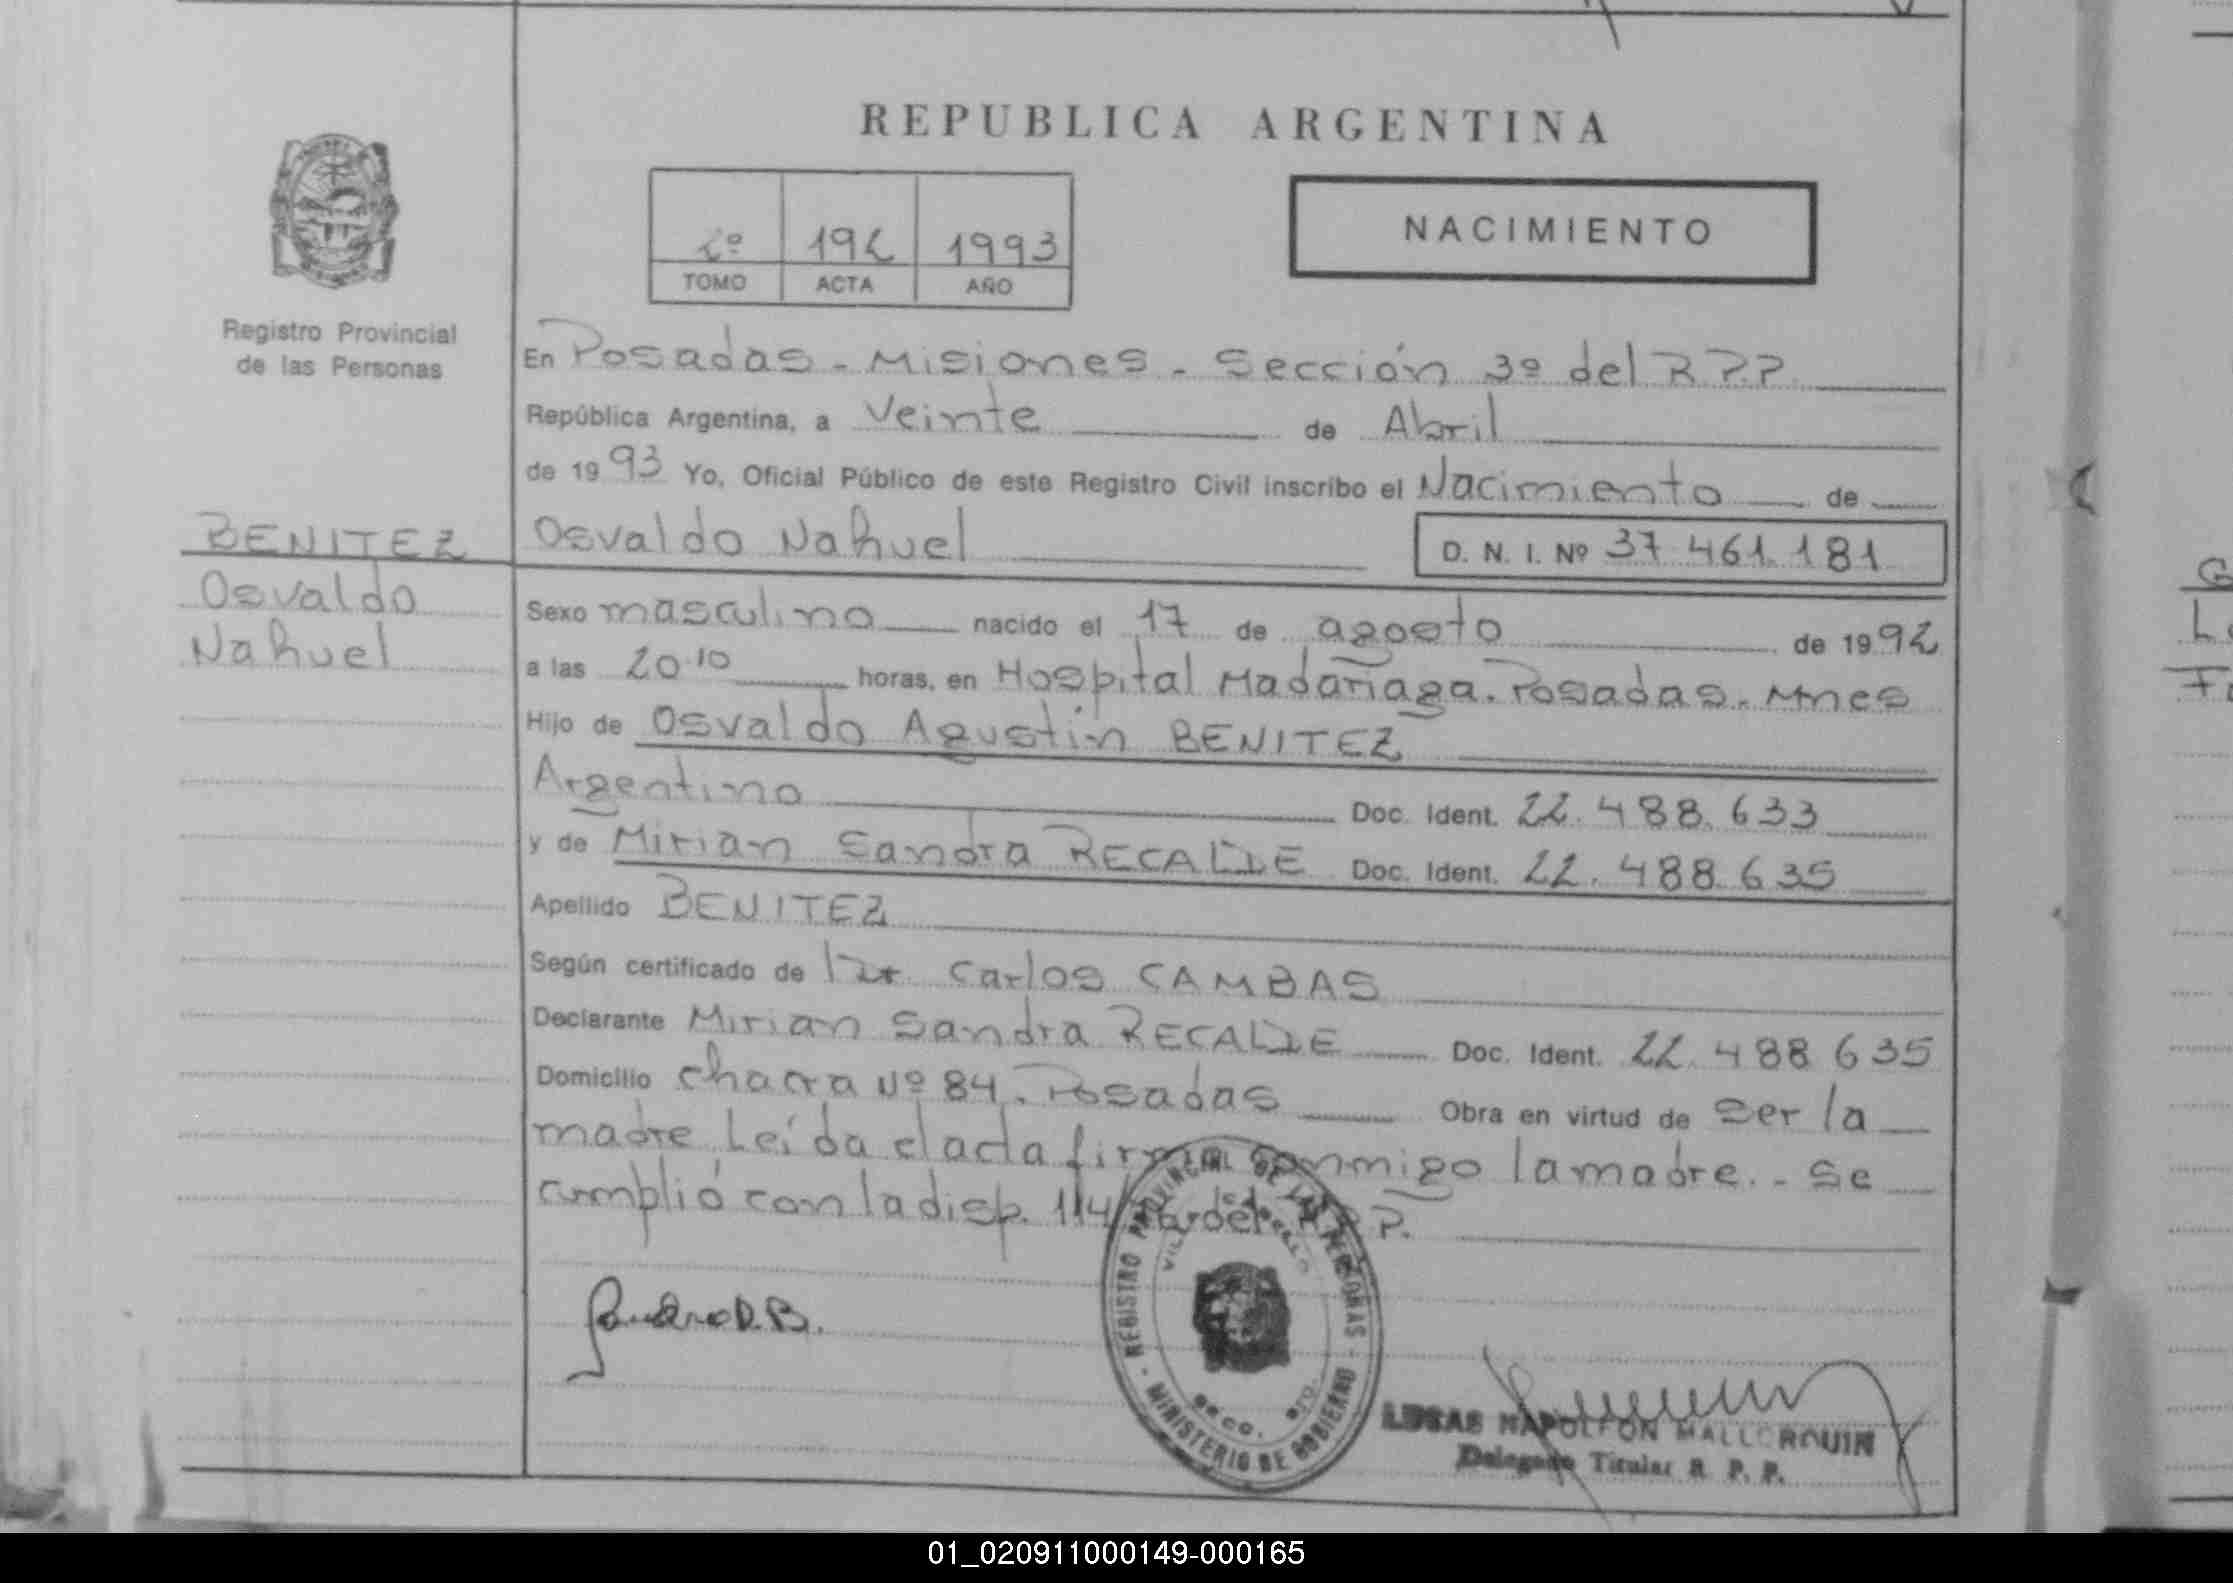 REPUBLICA ARGENTINA
2º 192 1993
TOMO ACTA AÑO
NACIMIENTO
Registro Provincial
de las Personas
En Posadas - Misiones - Sección 3º del R.P.P.
República Argentina, a Veinte de Abril
de 1993 Yo, Oficial Público de este Registro Civil inscribo el Nacimiento de
BENITEZ
Osvaldo
Nahuel
Osvaldo Nahuel D. N. I. Nº 37.461.181
Sexo masculino nacido el 17 de agosto de 1992
a las 20.10 horas, en Hospital Madariaga. Posadas. Mnes
Hijo de Osvaldo Agustín BENITEZ
Argentino Doc. Ident. 22.488.633
y de Mirian Sandra RECALDE Doc. Ident. 22.488.635
Apellido BENITEZ
Según certificado de Dr. Carlos CAMBAS
Declarante Mirian Sandra RECALDE Doc. Ident. 22.488.635
Domicilio chacra Nº 84. Posadas Obra en virtud de ser la
madre. Leída el acta firma conmigo la madre. - Se
cumplió con la disp. 114 del R.P.P.
REGISTRO PROVINCIAL DE LAS PERSONAS
MINISTERIO DE GOBIERNO
LUCAS NAPOLEON MALLORQUIN
Delegado Titular R. P. P.
01_020911000149-000165